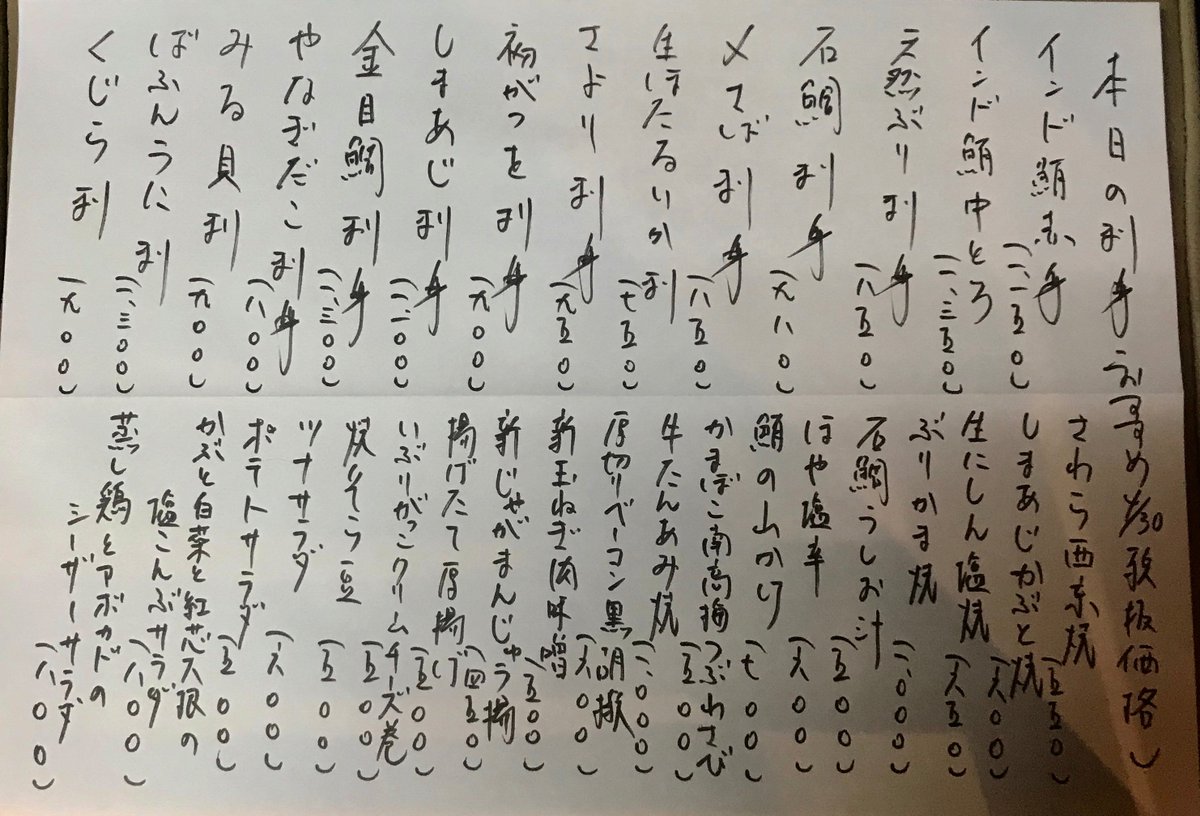 本日の刺身おすすめ 4/30 税抜価格)
インド鮪赤身(一、一五〇)
インド鮪中とろ(一、三五〇)
天然ぶり刺身(八五〇)
石鯛刺身(九八〇)
〆さば刺身(八五〇)
生ほたるいか刺(七五〇)
さより刺身(九五〇)
初がつを刺身(九〇〇)
しまあじ刺身(一、一〇〇)
金目鯛刺身(一、三〇〇)
やなぎだこ刺身(八〇〇)
みる貝刺(九〇〇)
ばふんうに刺(一、三〇〇)
くじら刺(九〇〇)
さわら西京焼(五五〇)
しまあじかぶと焼(六〇〇)
生にしん塩焼(六五〇)
ぶりかま焼(一、〇〇〇)
石鯛うしお汁(五〇〇)
ほや塩辛(六〇〇)
鮪の山かけ(七〇〇)
かまぼこ南高梅つぶわさび(五〇〇)
牛たんあみ焼(一、〇〇〇)
厚切りベーコン黒胡椒(六〇〇)
新玉ねぎ肉味噌(五〇〇)
新じゃがまんじゅう揚(四五〇)
揚げたて厚揚げ(五〇〇)
いぶりがっこクリームチーズ巻(五〇〇)
焼そら豆(五〇〇)
ツナサラダ(六〇〇)
ポテトサラダ(五〇〇)
かぶと白菜と紅芯大根の
塩こんぶサラダ(八〇〇)
蒸し鶏とアボカドの
シーザーサラダ(八〇〇)